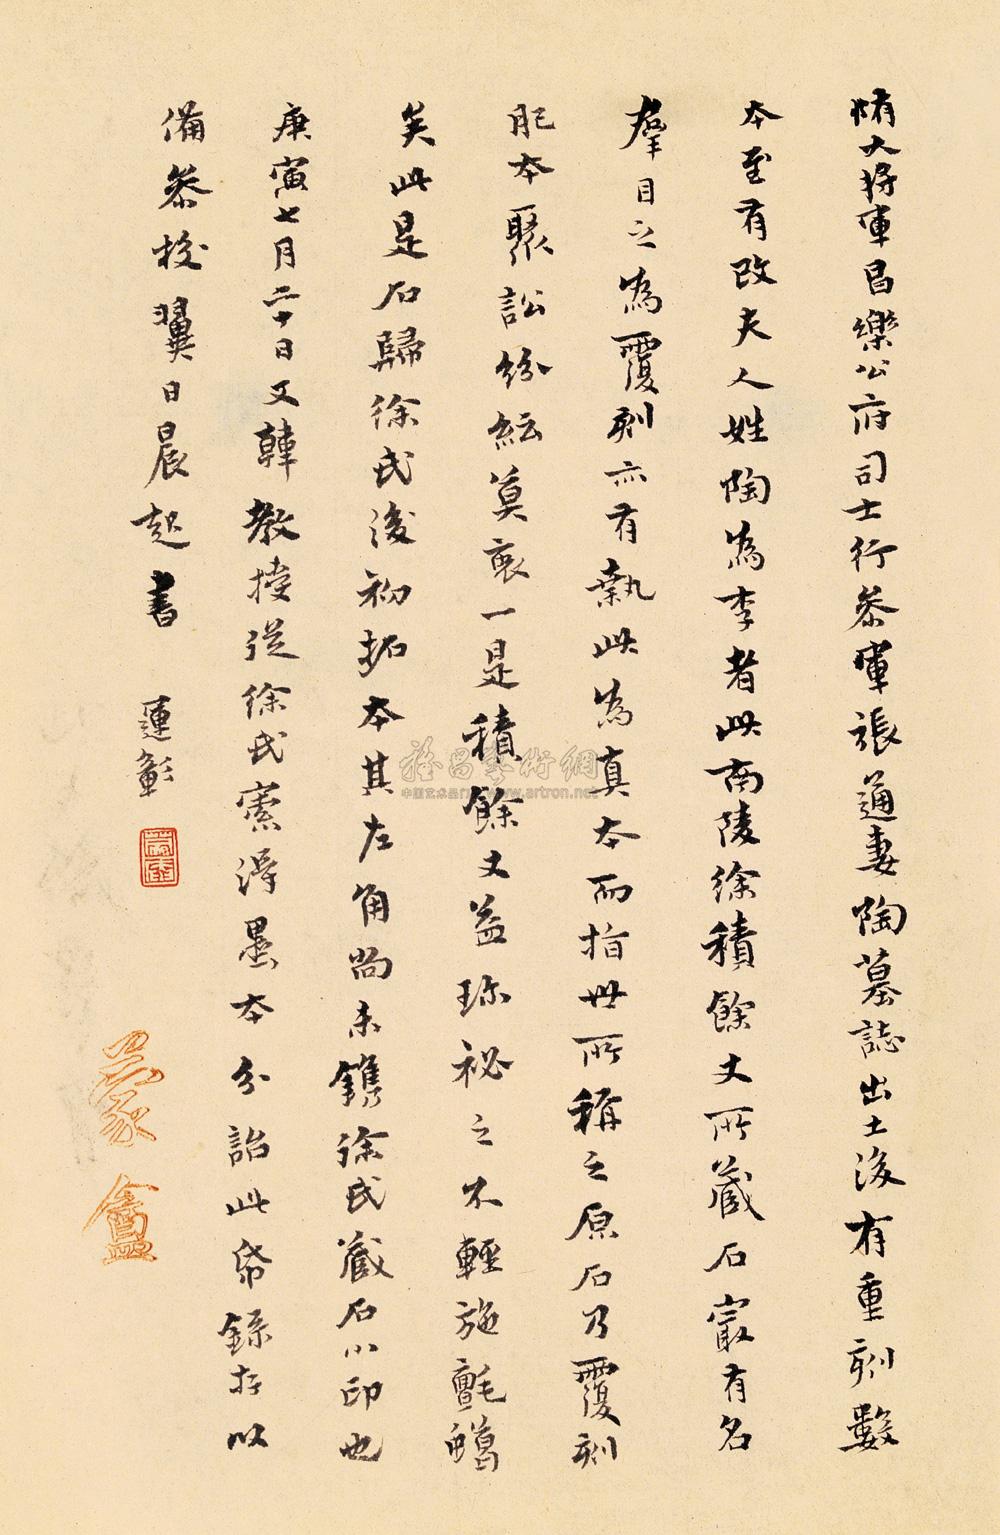 隋大將軍昌樂公府司士行參軍張通妻陶墓誌出土後有重刻數
本至有改夫人姓陶為李者此南陵徐積餘丈所藏石寂有名
羣目之為覆刻亦有執此為真本而指世所稱之原石乃覆刻
肥本聚訟紛紜莫衷一是積餘丈益珍祕之不輕施氈蠟
矣此是石歸徐氏後初拓本其左角尚未鐫徐氏藏石小印也
庚寅七月二十日又韓教授從徐氏索得墨本分詒此帋錄存以
備參校翼日晨起書 蓮彰
雅昌藝術網
中国艺术品 www.artron.net